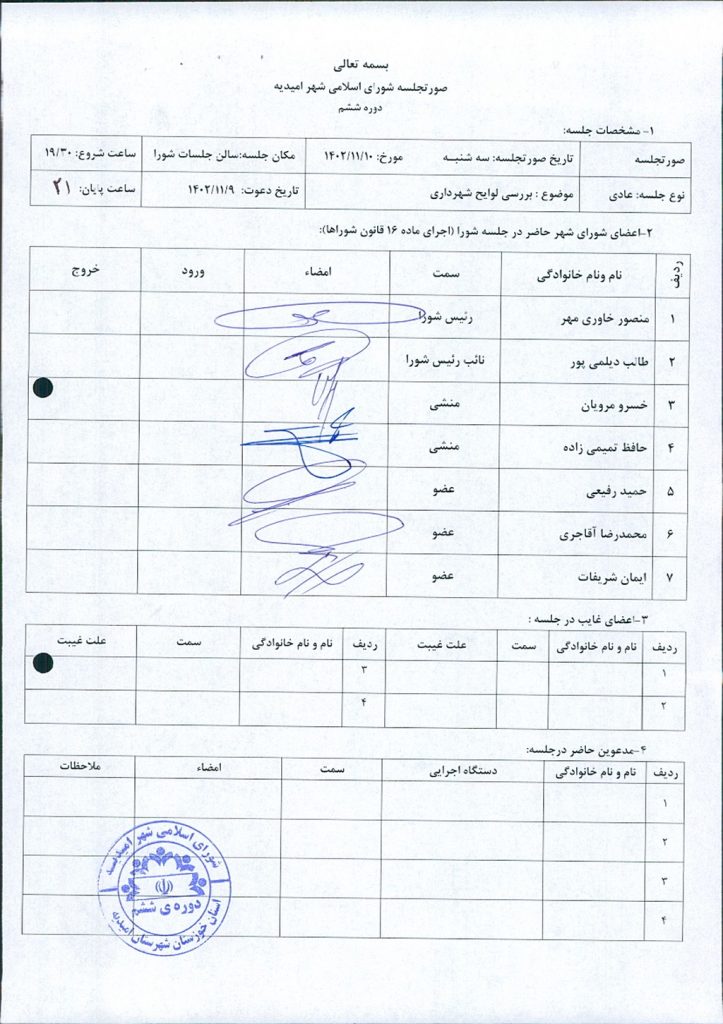 بسمه تعالی
صورتجلسه شورای اسلامی شهر امیدیه
دوره ششم
۱- مشخصات جلسه:
صورتجلسه تاریخ صورتجلسه: سه شنبـه مورخ: ۱۴۰۲/۱۱/۱۰ مکان جلسه:سالن جلسات شورا ساعت شروع: ۱۹/۳۰
نوع جلسه: عادی موضوع : بررسی لوایح شهرداری تاریخ دعوت: ۱۴۰۲/۱۱/۹ ساعت پایان: ۲۱
۲-اعضای شورای شهر حاضر در جلسه شورا (اجرای ماده ۱۶ قانون شوراها):
ردیف نام ونام خانوادگی سمت امضاء ورود خروج
۱ منصور خاوری مهر رئیس شورا
۲ طالب دیلمی پور نائب رئیس شورا
۳ خسرو مرویان منشی
۴ حافظ تمیمی زاده منشی
۵ حمید رفیعی عضو
۶ محمدرضا آقاجری عضو
۷ ایمان شریفات عضو
۳-اعضای غایب در جلسه :
ردیف نام و نام خانوادگی سمت علت غیبت ردیف نام و نام خانوادگی سمت علت غیبت
۱ ۳
۲ ۴
۴-مدعوین حاضر درجلسه:
ردیف نام و نام خانوادگی دستگاه اجرایی سمت امضاء ملاحظات
۱
۲
۳
۴
شورای اسلامی شهر امیدیه
دوره ی ششم
استان خوزستان شهرستان امیدیه